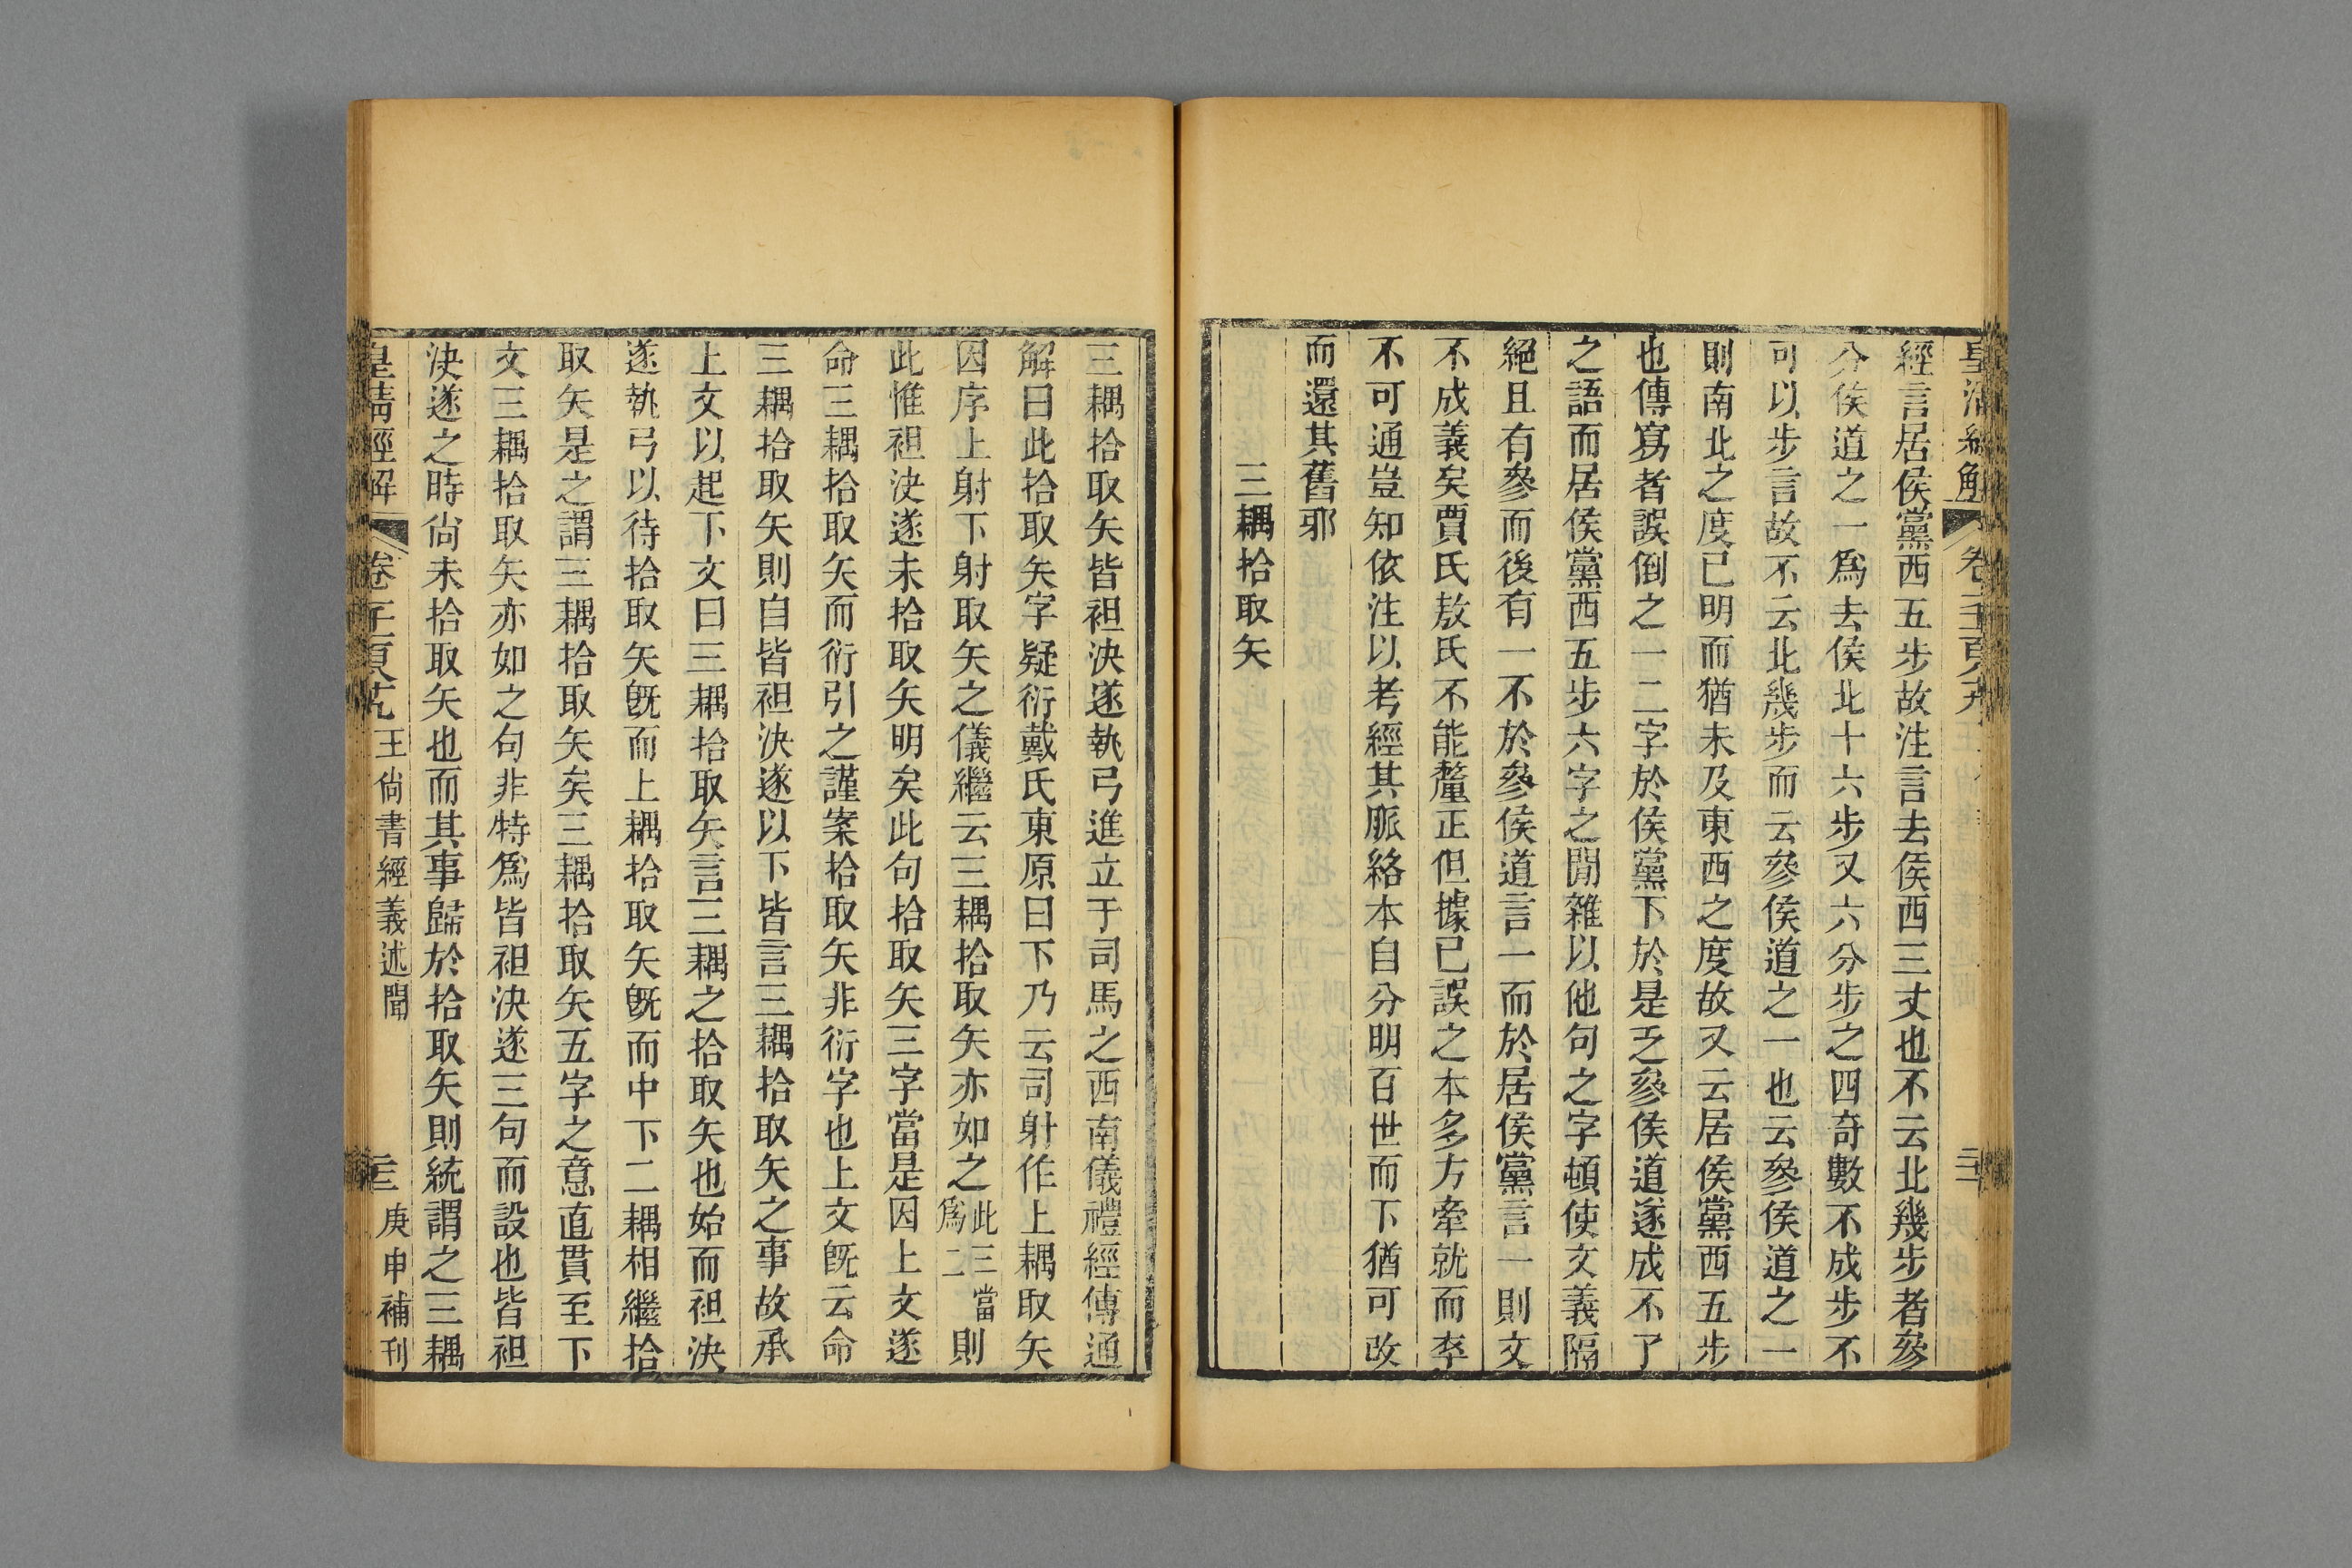 經言居侯黨西五步故注言去侯西三丈也不云北幾步者參
分侯道之一爲去侯北十六步又六分步之四奇數不成步不
可以步言故不云北幾步而云參侯道之一也云參侯道之一
則南北之度已明而猶未及東西之度故又云居侯黨西五步
也傳寫者誤倒之一二字於侯黨下於是乏參侯道遂成不了
之語而居侯黨西五步六字之閒雜以他句之字頓使文義隔
絕且有參而後有一不於參侯道言一而於居侯黨言一則文
不成義矣賈氏敖氏不能釐正但據已誤之本多方牽就而李
不可通豈知依注以考經其脈絡本自分明百世而下猶可改
而還其舊邪
三耦拾取矢
三耦拾取矢皆袒決遂執弓進立于司馬之西南儀禮經傳通
解曰此拾取矢字疑衍戴氏東原曰下乃云司射作上耦取矢
因序上射下射取矢之儀繼云三耦拾取矢亦如之此三當爲二則
此惟袒決遂未拾取矢明矣此句拾取矢三字當是因上文遂
命三耦拾取矢而衍引之謹案拾取矢非衍字也上文旣云命
三耦拾取矢則自皆袒決遂以下皆言三耦拾取矢之事故承
上文以起下文曰三耦拾取矢言三耦之拾取矢也始而袒決
遂執弓以待拾取矢旣而上耦拾取矢旣而中下二耦相繼拾
取矢是之謂三耦拾取矢矣三耦拾取矢五字之意直貫至下
文三耦拾取矢亦如之句非特爲皆袒決遂三句而設也皆袒
決遂之時尙未拾取矢也而其事歸於拾取矢則統謂之三耦
皇清經解 卷 王尙書經義述聞 庚申補刊